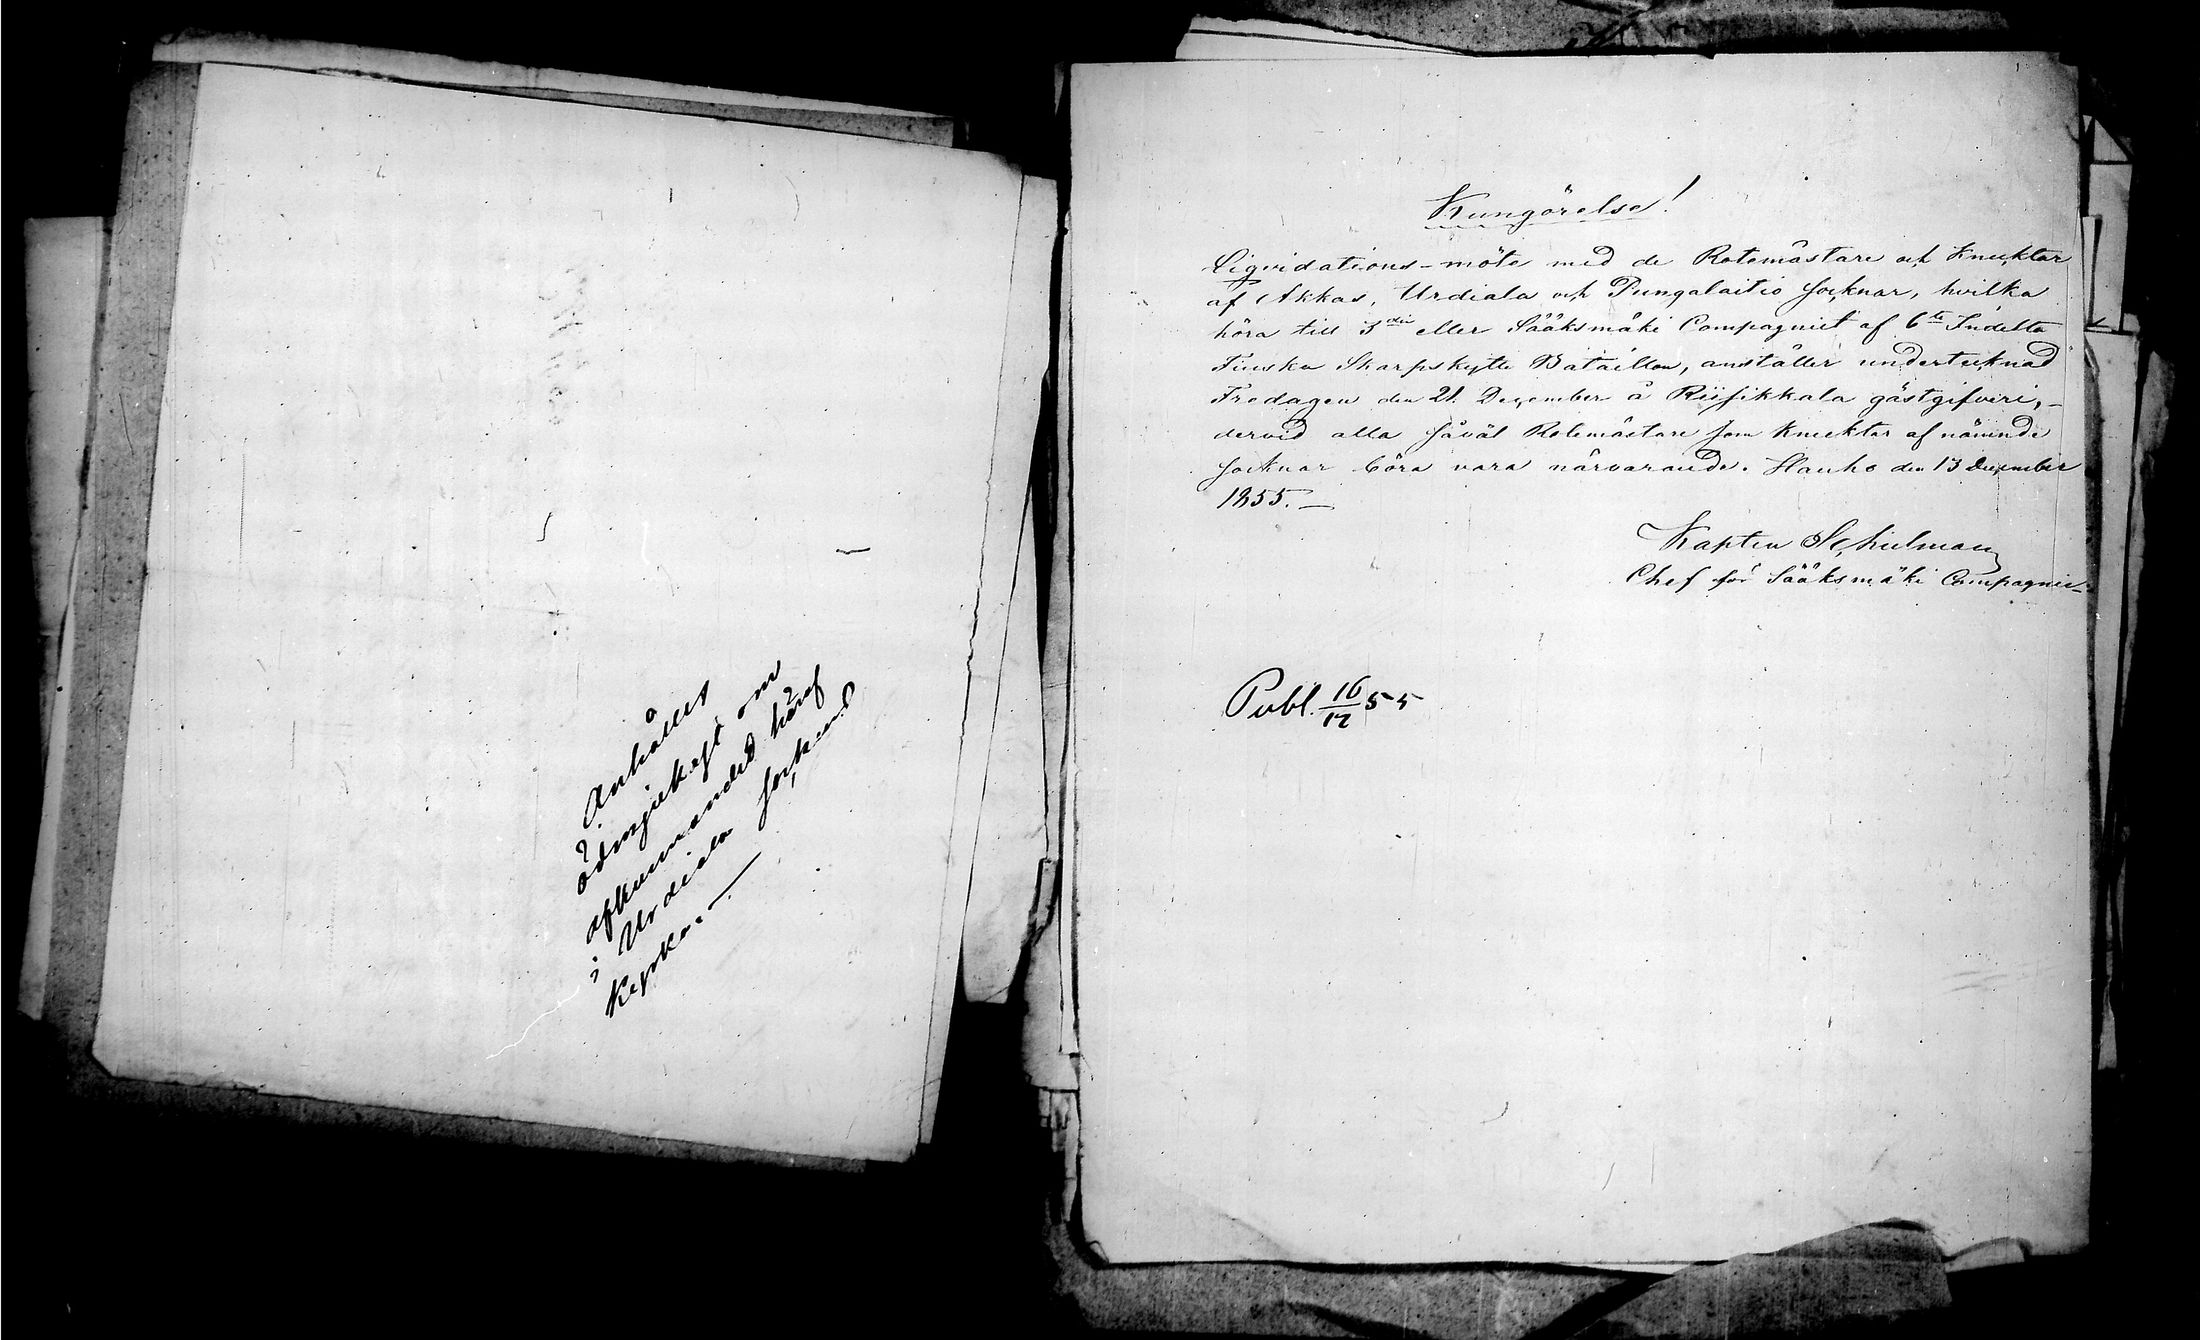 Anhålles
ödmjukast om
afkunnandet häraf
i Urdiala sockens
kyrka. —
Kungörelse!
Liqvidations-möte med de Rotemästare och Knecktar
af Akkas, Urdiala och Pungalaitio socknar, hvilka
höra till 3die eller Sääksmäki Compagniet af 6te Indelta
Finska Skarpskytte Bataillon, anställer undertecknad
Fredagen den 21. December å Riisikkala gästgifveri, –
dervid alla såväl Rotemästare som Knecktar af nämnde
socknar böra vara närvarande. Hauho den 13 December
1855. —
Kapten Schulman
Chef för Sääksmäki Compagnie
Publ. 16/12 55